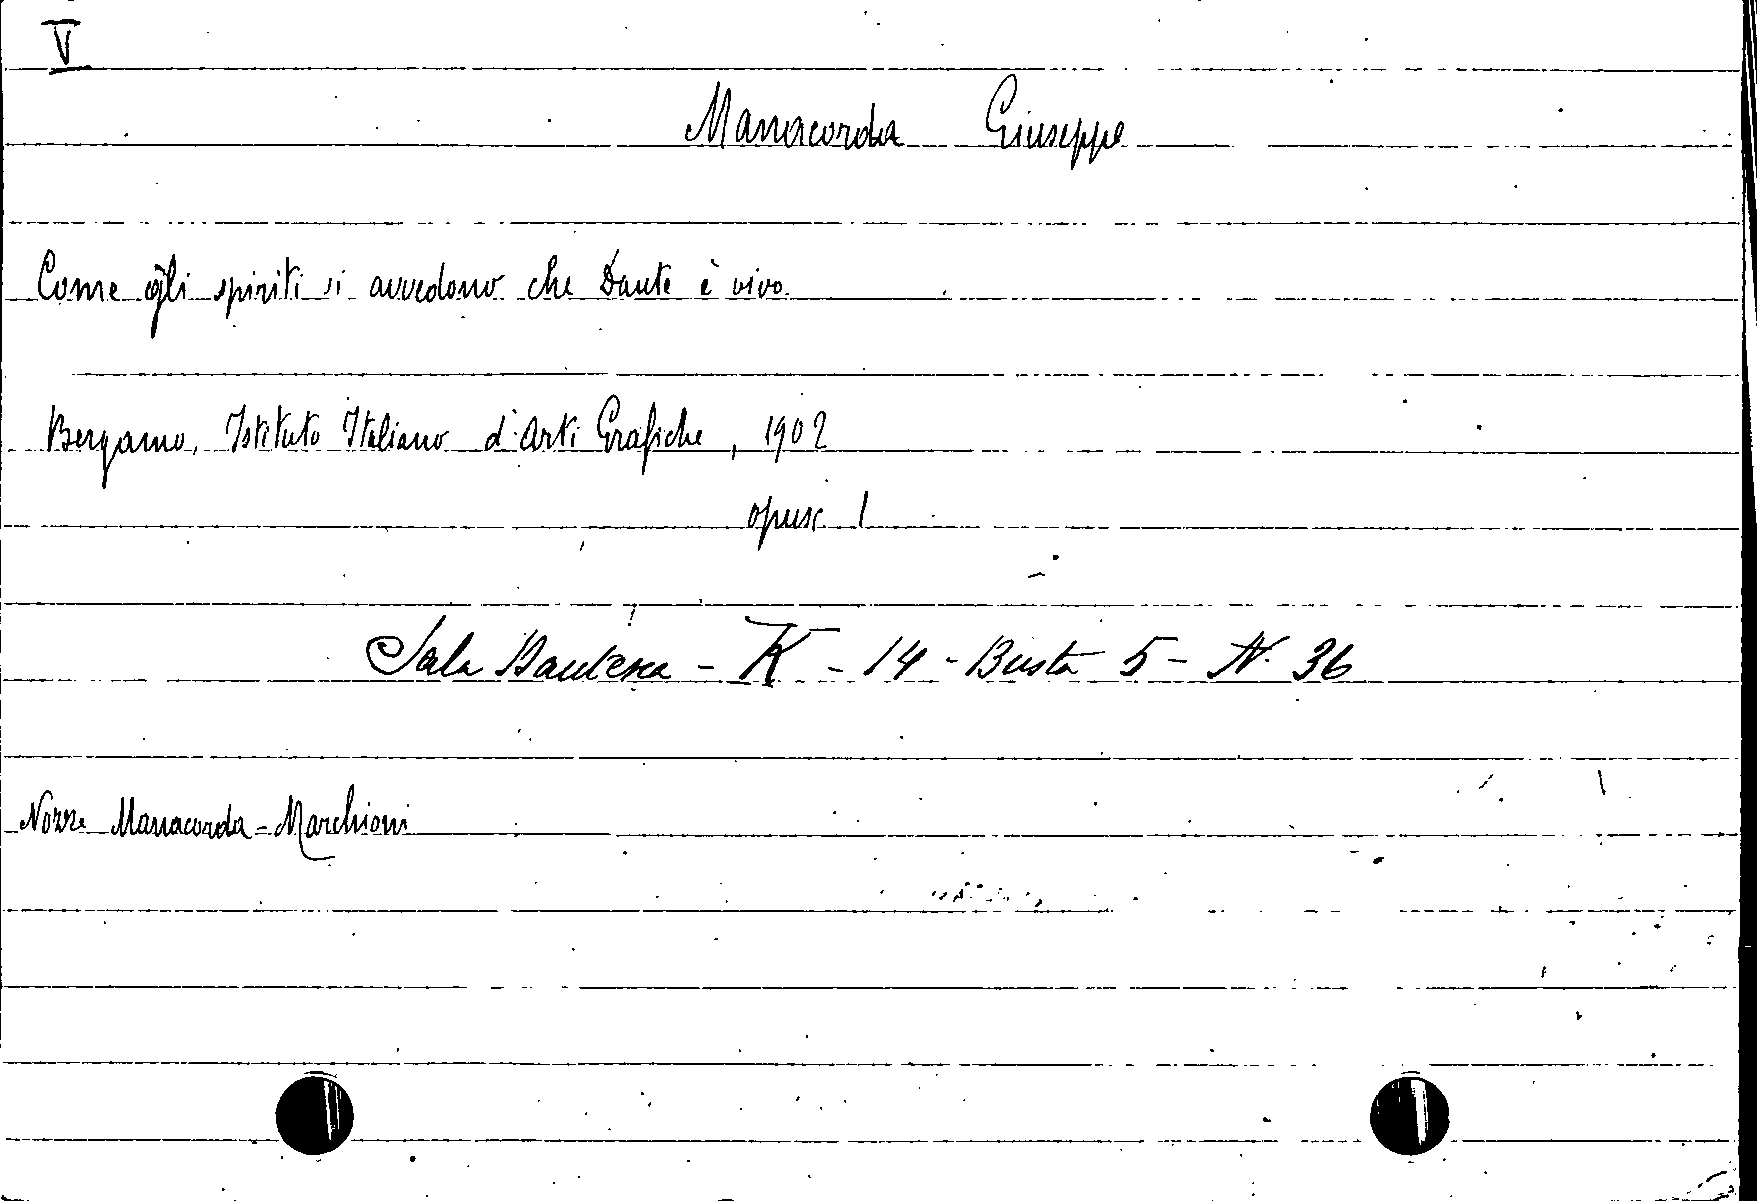 V
Manacorda Giuseppe
Come gli spiriti si avvedono che Dante è vivo.
Bergamo, Istituto Italiano d'Arti Grafiche, 1902
opusc 1
Sala Dantesca - K - 14 - Busta 5 - N. 36
Nozze Manacorda - Marchioni